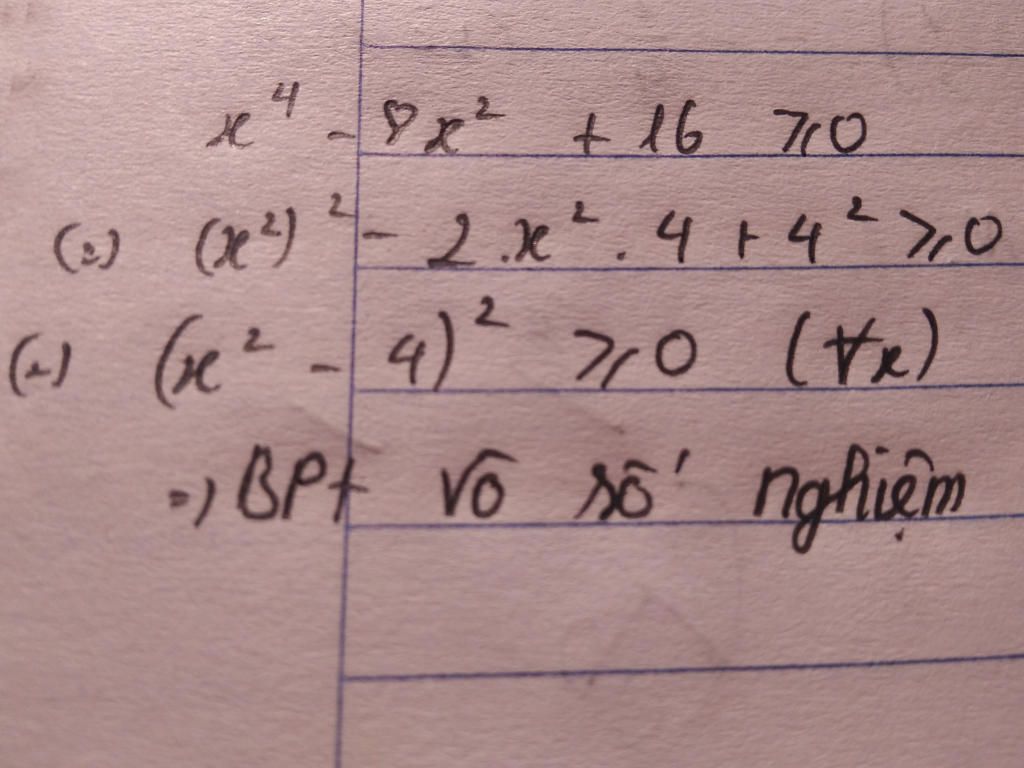 x⁴ - 8x² + 16 ⩾ 0
(=) (x²)² - 2.x².4 + 4² ⩾ 0
(=) (x² - 4)² ⩾ 0 (∀x)
=) BPt vô số nghiệm